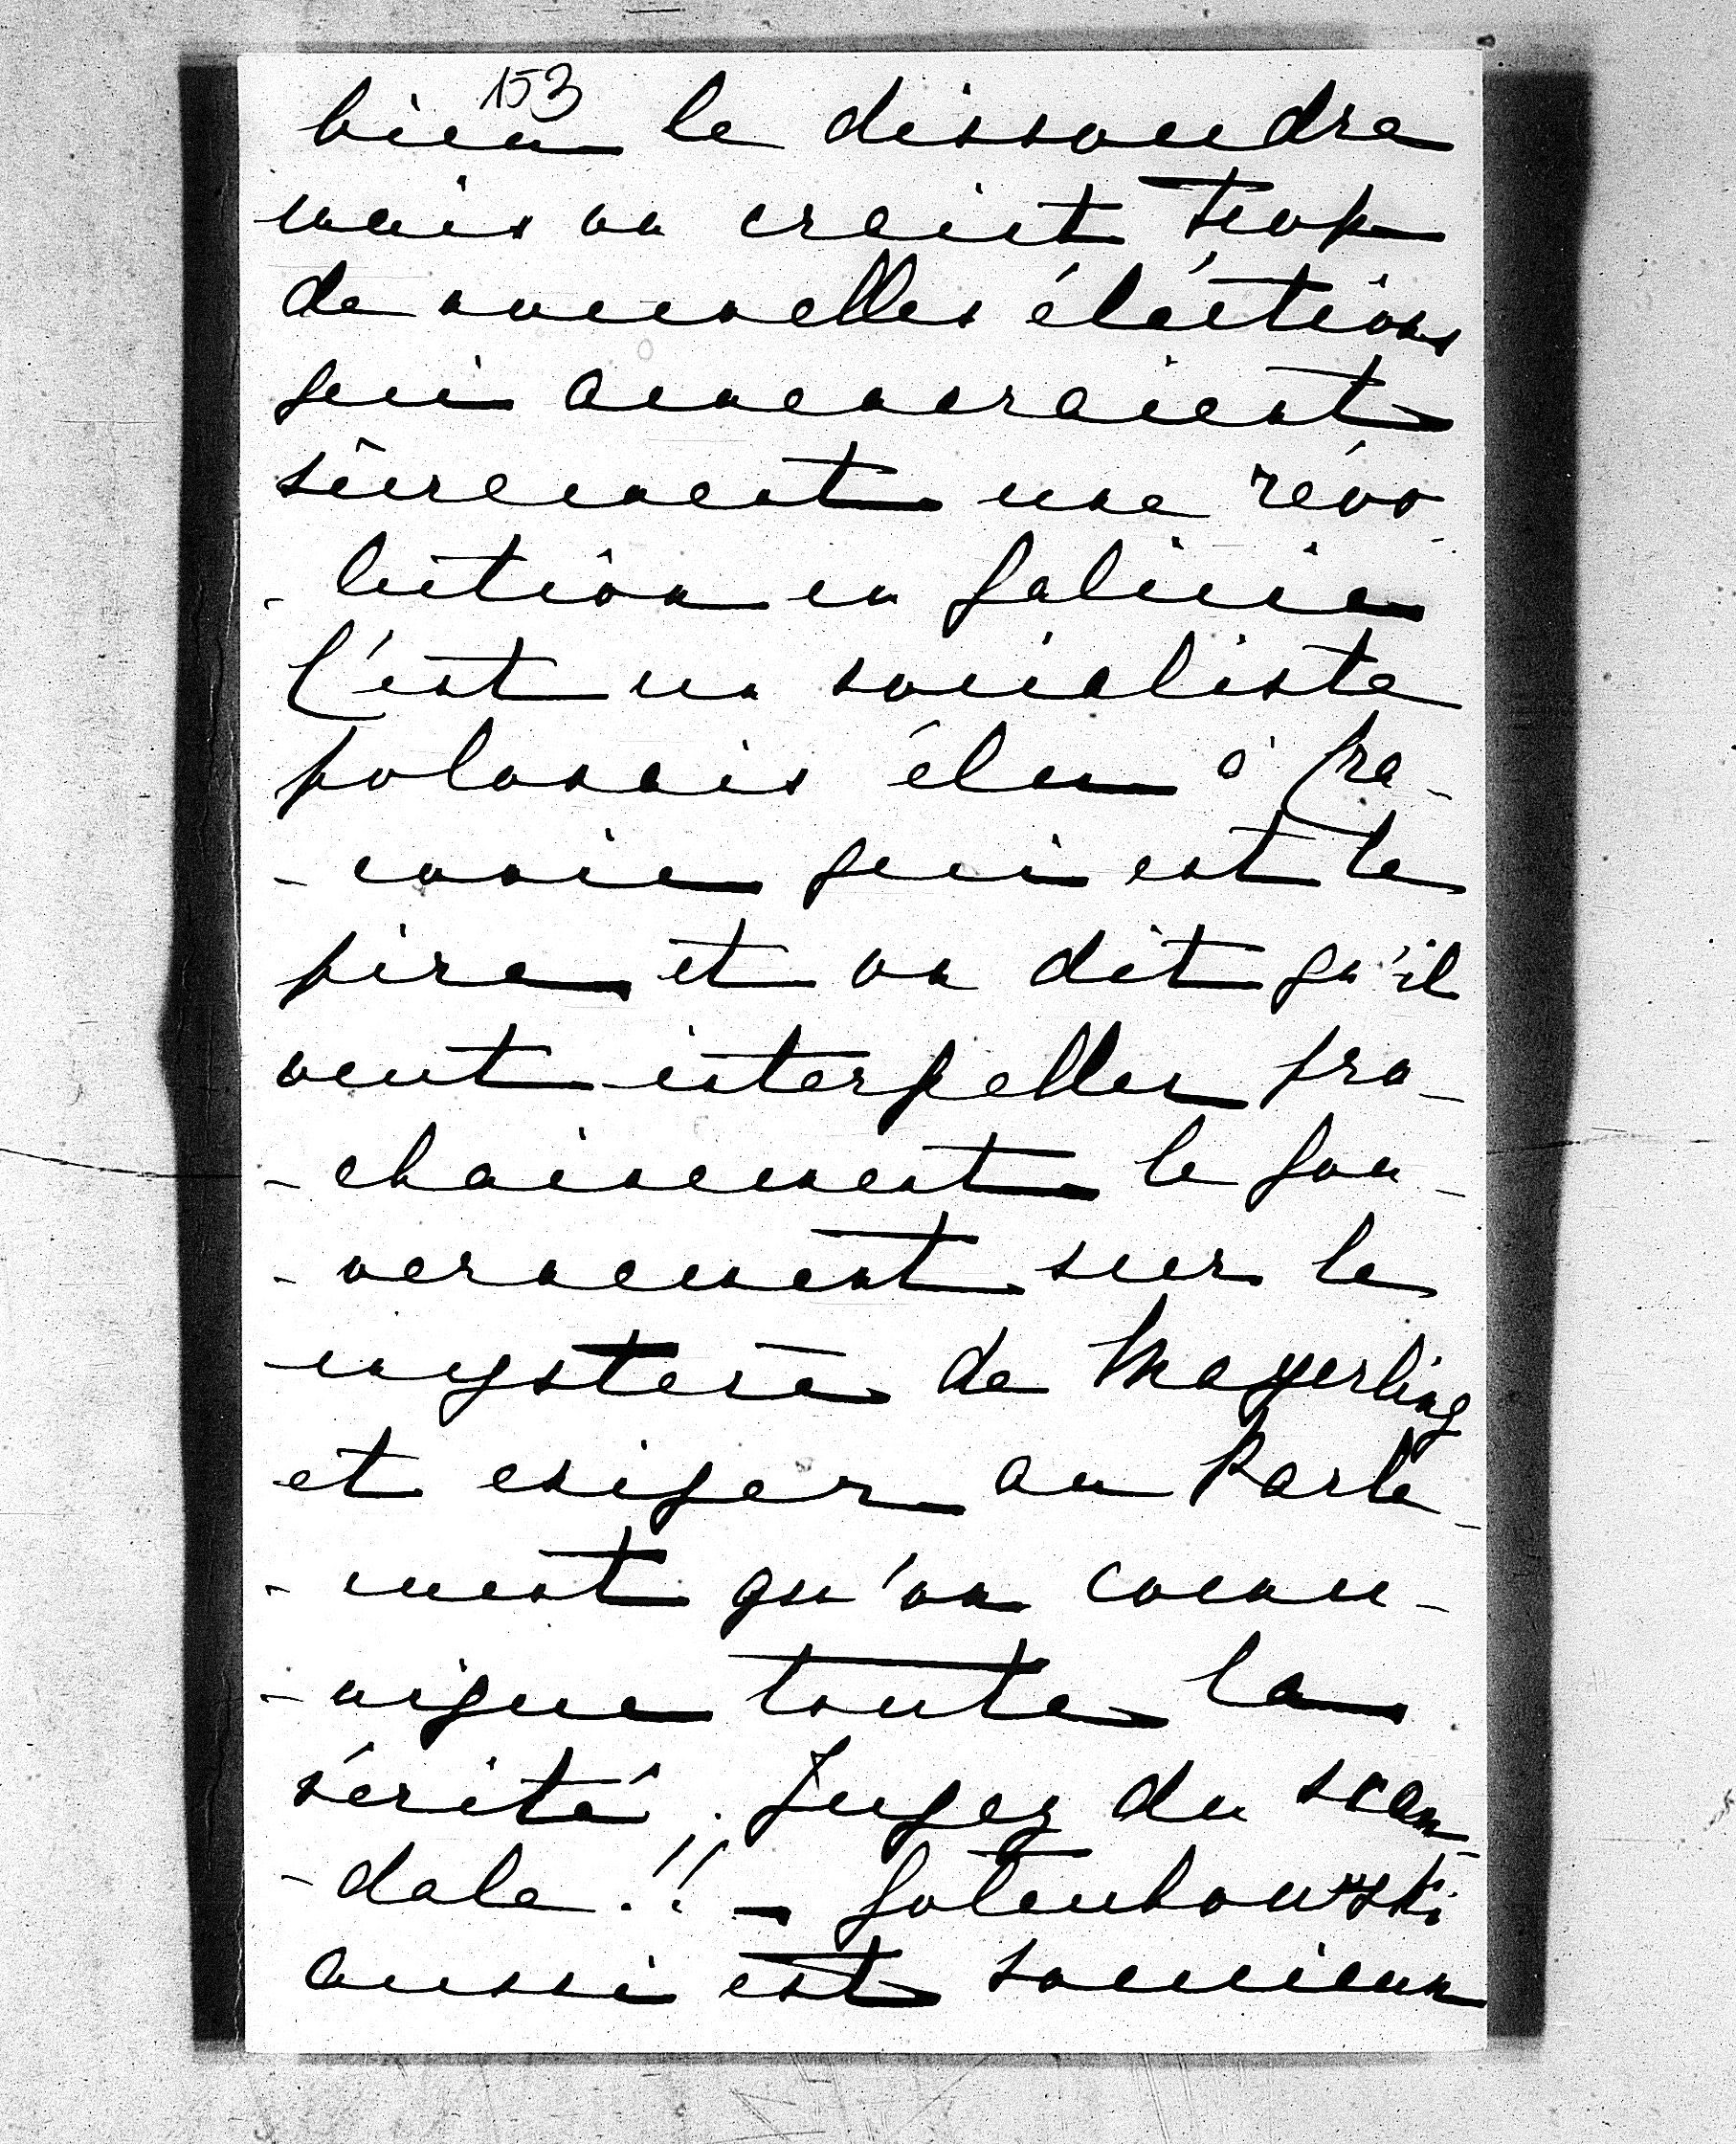 153
bien le dissoudre
mais on craint trop
de nouvelles éléctions
qui amèneraient
sûrement une révo
- lution en Galicie
C'est un socialiste
polonais élu à Cra-
- covie qui est le
pire et on dit qu'il
veut interpeller pro-
- chainement le gou-
- vernement sur le
mystère de Mayerling
et exiger au Parle-
- ment qu'on commu-
- nique toute la
vérité. Jugez du scan-
- dale !! - Goluchowski
aussi est soucieux